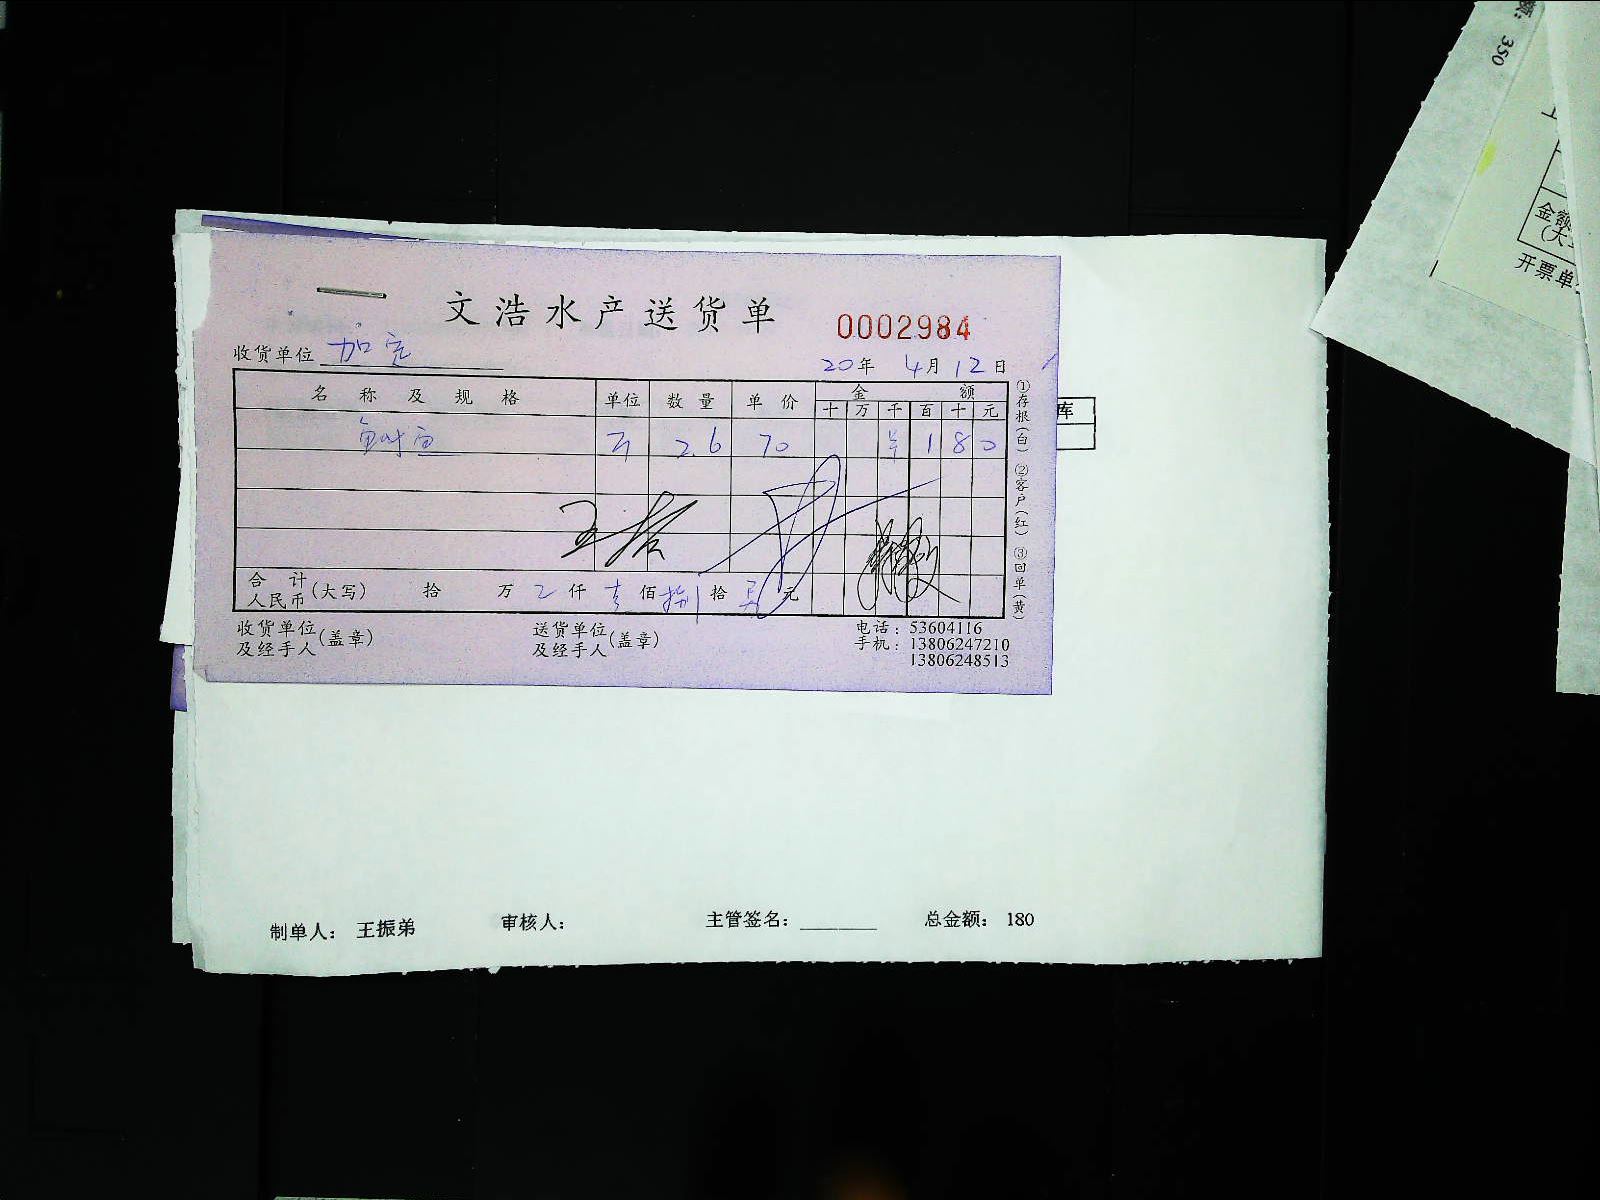 文浩水产送货单
0002984
收货单位 加完
20年 4月12日
名称及规格 单位 数量 单价 金额
十 万 千 百 十 元
鲥鱼 斤 2.6 70 180
合计人民币(大写) 拾 万 仟 壹佰捌拾 元
收货单位及经手人(盖章) 送货单位及经手人(盖章) 电话:53604116
手机:13806247210
13806248513
①存根(白) ②客户(红) ③回单(黄)
库
制单人: 王振弟 审核人: 主管签名: 总金额: 180
额: 350
金额
(大
开票单